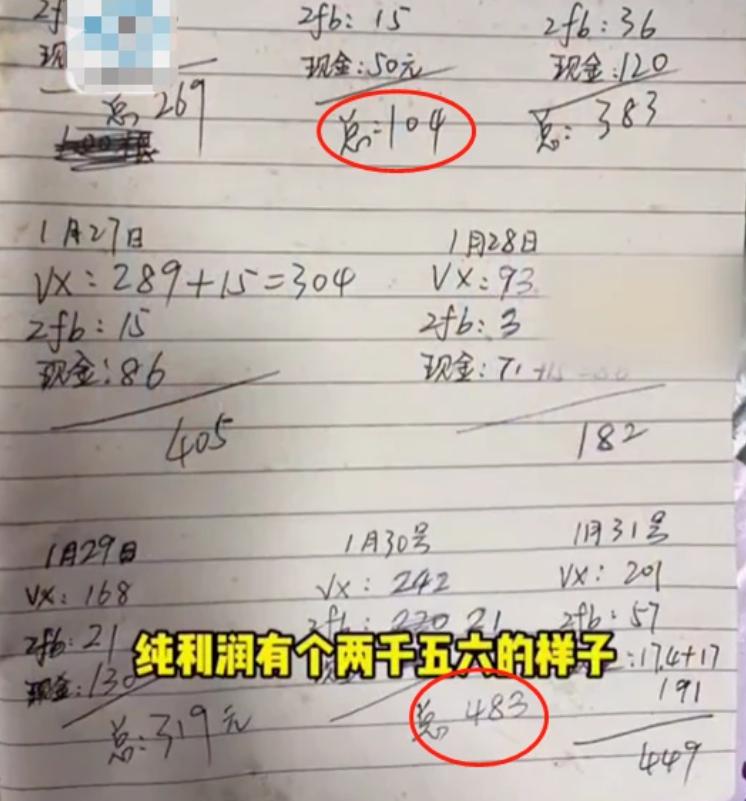 2f
现
总 269
2fb: 15
现金:50元
总:104
2fb:36
现金:120
总: 383
1月27日
VX: 289+15=304
2fb: 15
现金:86
405
1月28日
VX:93
2fb:3
现金:71+15=86
182
1月29日
VX: 168
2fb: 21
现金:130
总:319元
1月30号
VX: 242
21
总 483
1月31号
VX: 201
2fb: 57
:174+17
191
449
纯利润有个两千五六的样子